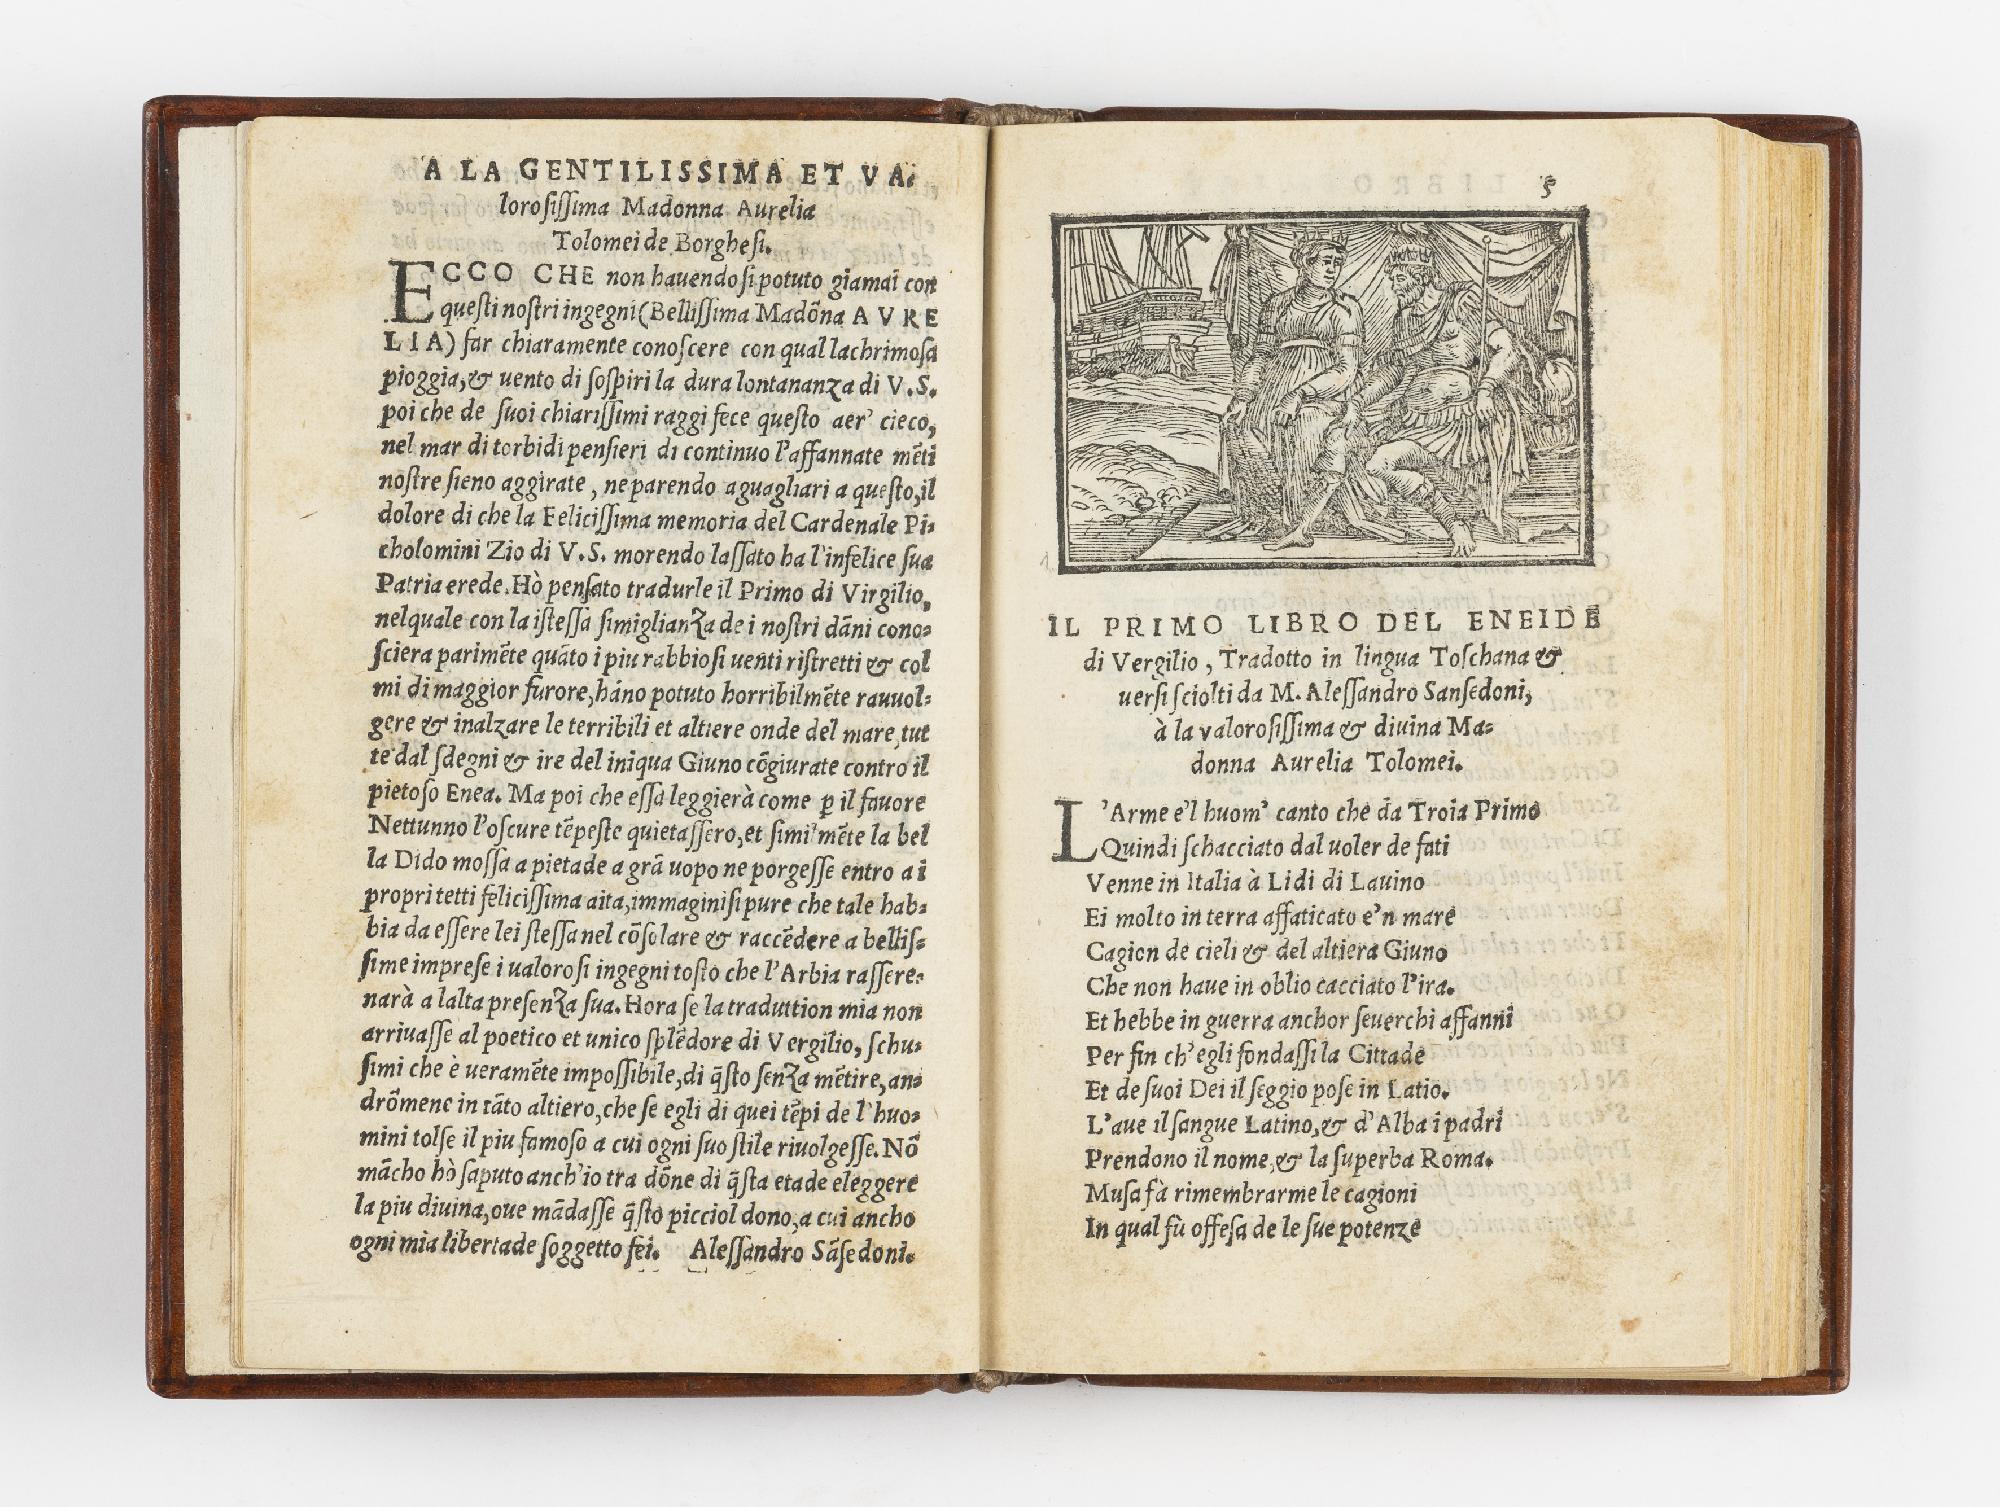 A LA GENTILISSIMA ET VA-
lorosissima Madonna Aurelia
Tolomei de Borghesi.
ECCO CHE non hauendosi potuto giamai con
questi nostri ingegni (Bellissima Madõna AVRE
LIA) far chiaramente conoscere con qual lachrimosa
pioggia, & uento di sospiri la dura lontananza di V.S.
poi che de suoi chiarissimi raggi fece questo aer' cieco,
nel mar di torbidi pensieri di continuo l'affannate mẽti
nostre sieno aggirate, ne parendo aguagliari a questo, il
dolore di che la Felicissima memoria del Cardenale Pi-
cholomini Zio di V.S. morendo lassato ha l'infelice sua
Patria erede. Hò pensato tradurle il Primo di Virgilio,
nelquale con la istessa simiglianza de i nostri dãni cono-
sciera parimẽte quãto i piu rabbiosi uenti ristretti & col
mi di maggior furore, hãno potuto horribilmẽte rauuol-
gere & inalzare le terribili et altiere onde del mare, tut
te dal sdegni & ire del iniqua Giuno cõgiurate contro il
pietoso Enea. Ma poi che essa leggierà come ꝑ il fauore
Nettunno l'oscure tẽpeste quietassero, et similmẽte la bel
la Dido mossa a pietade a grã uopo ne porgesse entro a i
propri tetti felicissima aita, immaginisi pure che tale hab-
bia da essere lei stessa nel cõsolare & raccẽdere a bellis-
sime imprese i ualorosi ingegni tosto che l'Arbia rassere-
narà a lalta presenza sua. Hora se la traduttion mia non
arriuasse al poetico et unico splẽdore di Vergilio, schu-
simi che è ueramẽte impossibile, di q̃sto senza mẽtire, an-
drõmene in tãto altiero, che se egli di quei tẽpi de l'huo-
mini tolse il piu famoso a cui ogni suo stile riuolgesse. Nõ
mãcho hò saputo anch'io tra dõne di q̃sta etade eleggere
la piu diuina, oue mãdasse q̃sto picciol dono, a cui ancho
ogni mia libertade soggetto fei. Alessandro Sãsedoni.
5
IL PRIMO LIBRO DEL ENEIDE
di Vergilio, Tradotto in lingua Toschana &
uersi sciolti da M. Alessandro Sansedoni,
à la valorosissima & diuina Ma-
donna Aurelia Tolomei.
L'Arme e'l huom' canto che da Troia Primo
Quindi schacciato dal uoler de fati
Venne in Italia à Lidi di Lauino
Ei molto in terra affaticato e'n mare
Cagion de cieli & del altiera Giuno
Che non haue in oblio cacciato l'ira.
Et hebbe in guerra anchor seuerchi affanni
Per fin ch'egli fondassi la Cittade
Et de suoi Dei il seggio pose in Latio.
L'aue il sangue Latino, & d'Alba i padri
Prendono il nome, & la superba Roma.
Musa fà rimembrarme le cagioni
In qual fù offesa de le sue potenze